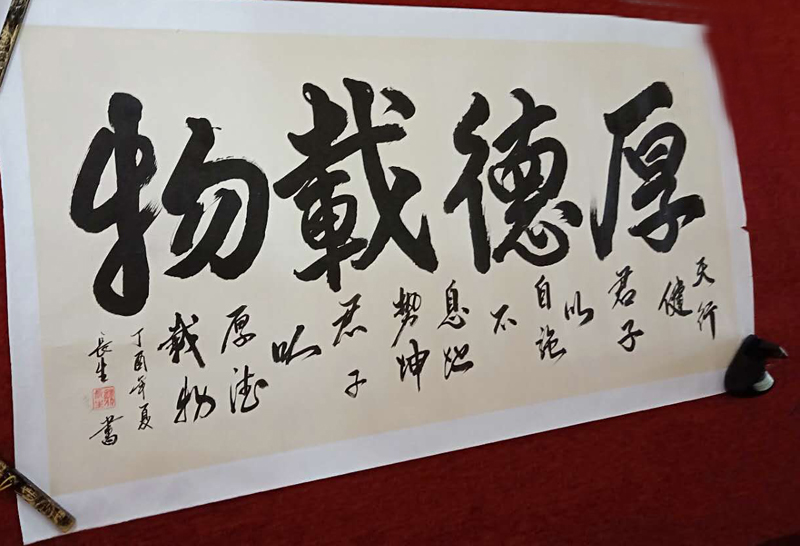 厚德載物
天行
健
君子
以
自強
不
息地
勢坤
君子
以
厚德
載物
丁酉年夏
長生
書